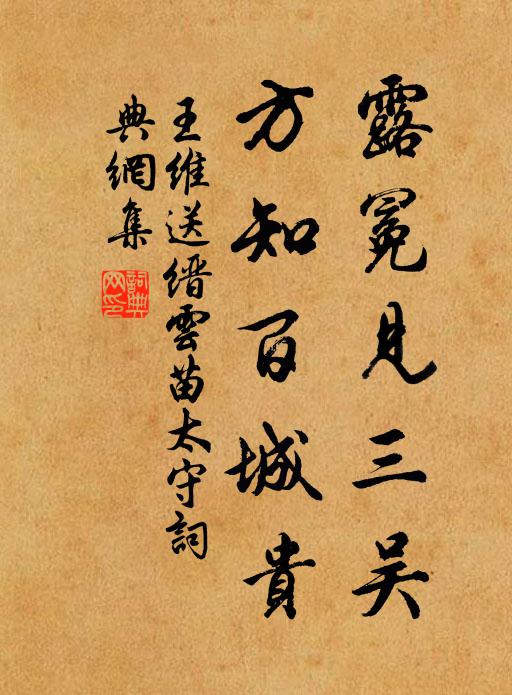 露冕見三吳
方知百城貴
王維送缙雲苗太守詞
典網集
詞典网印